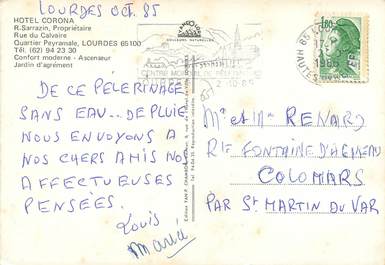 LOURDES OCT. 85
HOTEL CORONA
R. Sarrazin, Propriétaire
Rue du Calvaire
Quartier Peyramale, LOURDES 65100
Tél. (62) 94 23 30
Confort moderne - Ascenseur
Jardin d'agrément
COULEURS NATURELLES
DE CE PÈLERINAGE
SANS EAU.. DE PLUIE,
NOUS ENVOYONS A
NOS CHERS AMIS NOS
AFFECTUEUSES
PENSÉES.
Louis
Maria
1,80
65 LOURDES
17
1985
HAUTES
CENTRE MONDIAL DE PÈLERINAGE
M. et Mme RENARD
Rte FONTAINE D'AGNEAU
COLOMARS
PAR St MARTIN DU VAR